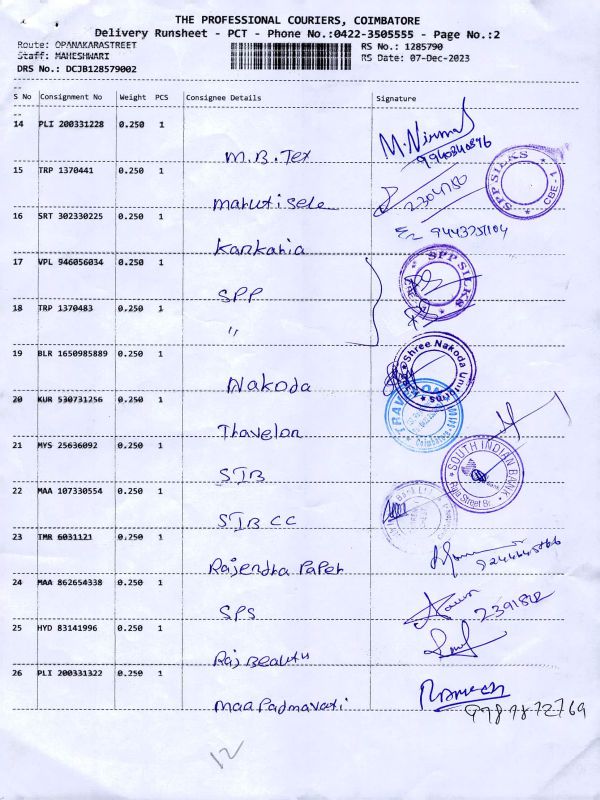 THE PROFESSIONAL COURIERS, COIMBATORE
Delivery Runsheet - PCT - Phone No.:0422-3505555 - Page No.:2
Route: OPANAKARASTREET RS No.: 1285790
Staff: MAHESHWARI RS Date: 07-Dec-2023
DRS No.: DCJB128579002
S No Consignment No Weight PCS Consignee Details Signature
14 PLI 200331228 0.250 1
M.B.Tex M.Nirmal
9940840896
15 TRP 1370441 0.250 1
Maruti Sele 2304750
SPP SILKS CBE-1
16 SRT 302330225 0.250 1
Kankaria 9443751104
17 VPL 946056034 0.250 1
SPP SPP SILKS
18 TRP 1370483 0.250 1
"
19 BLR 1650985889 0.250 1
Nakoda Shree Nakoda Uniforms
20 KUR 530731256 0.250 1
Travelon
21 MYS 25636092 0.250 1
SIB SOUTH INDIAN BANK
22 MAA 107330554 0.250 1
SIB CC
23 TMR 6031121 0.250 1
Rajendra Paper
24 MAA 862654338 0.250 1
SPS
25 HYD 83141996 0.250 1
Raj Beauty
26 PLI 200331322 0.250 1
Maa Padmavati Ramesh
9787872769
12